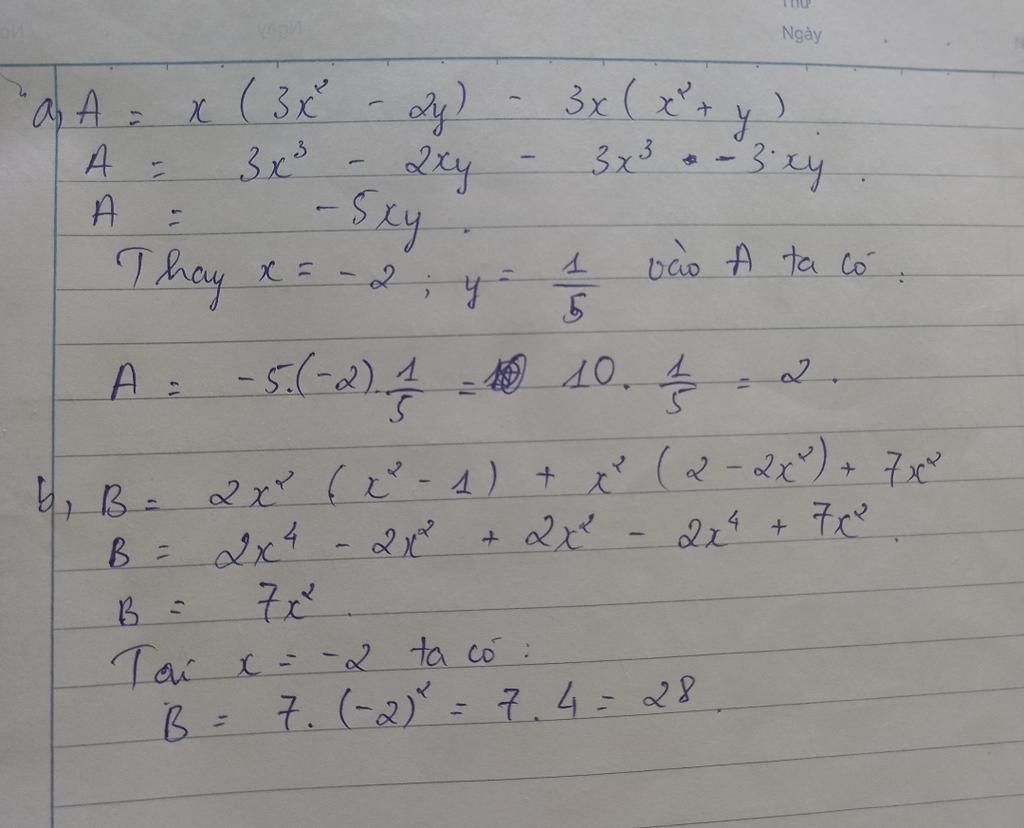 Thứ
Ngày
a, A = x ( 3x² - 2y) - 3x ( x² + y )
A = 3x³ - 2xy - 3x³ - 3.xy .
A = -5xy .
Thay x = -2 ; y = 1/5 vào A ta có :
A = -5.(-2).1/5 = 10 . 1/5 = 2 .
b, B = 2x² ( x² - 1 ) + x² ( 2 - 2x² ) + 7x²
B = 2x⁴ - 2x² + 2x² - 2x⁴ + 7x² .
B = 7x² .
Tại x = -2 ta có :
B = 7 . (-2)² = 7 . 4 = 28 .